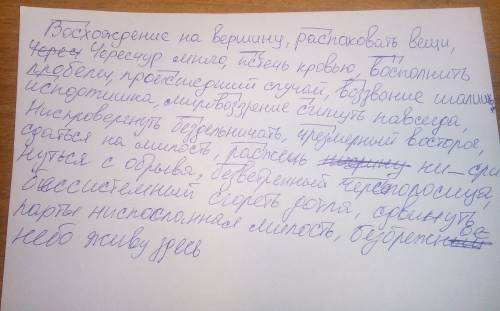 Восхождение на вершину, распаковать вещи,
Через Чересчур мило, истечь кровью, восполнить
пробелы, произошедший случай, воззвание
исподтишка, мировоззрение сгинуть навсегда,
Ниспровергнуть бездельничать, чрезмерный восторг,
сдаться на милость, разжечь ни_
нуться с обрыва, безветренный чересполосица,
бессистемный сгореть дотла, сдвинуть
парты ниспосланная милость, безбрежное
небо живу здесь